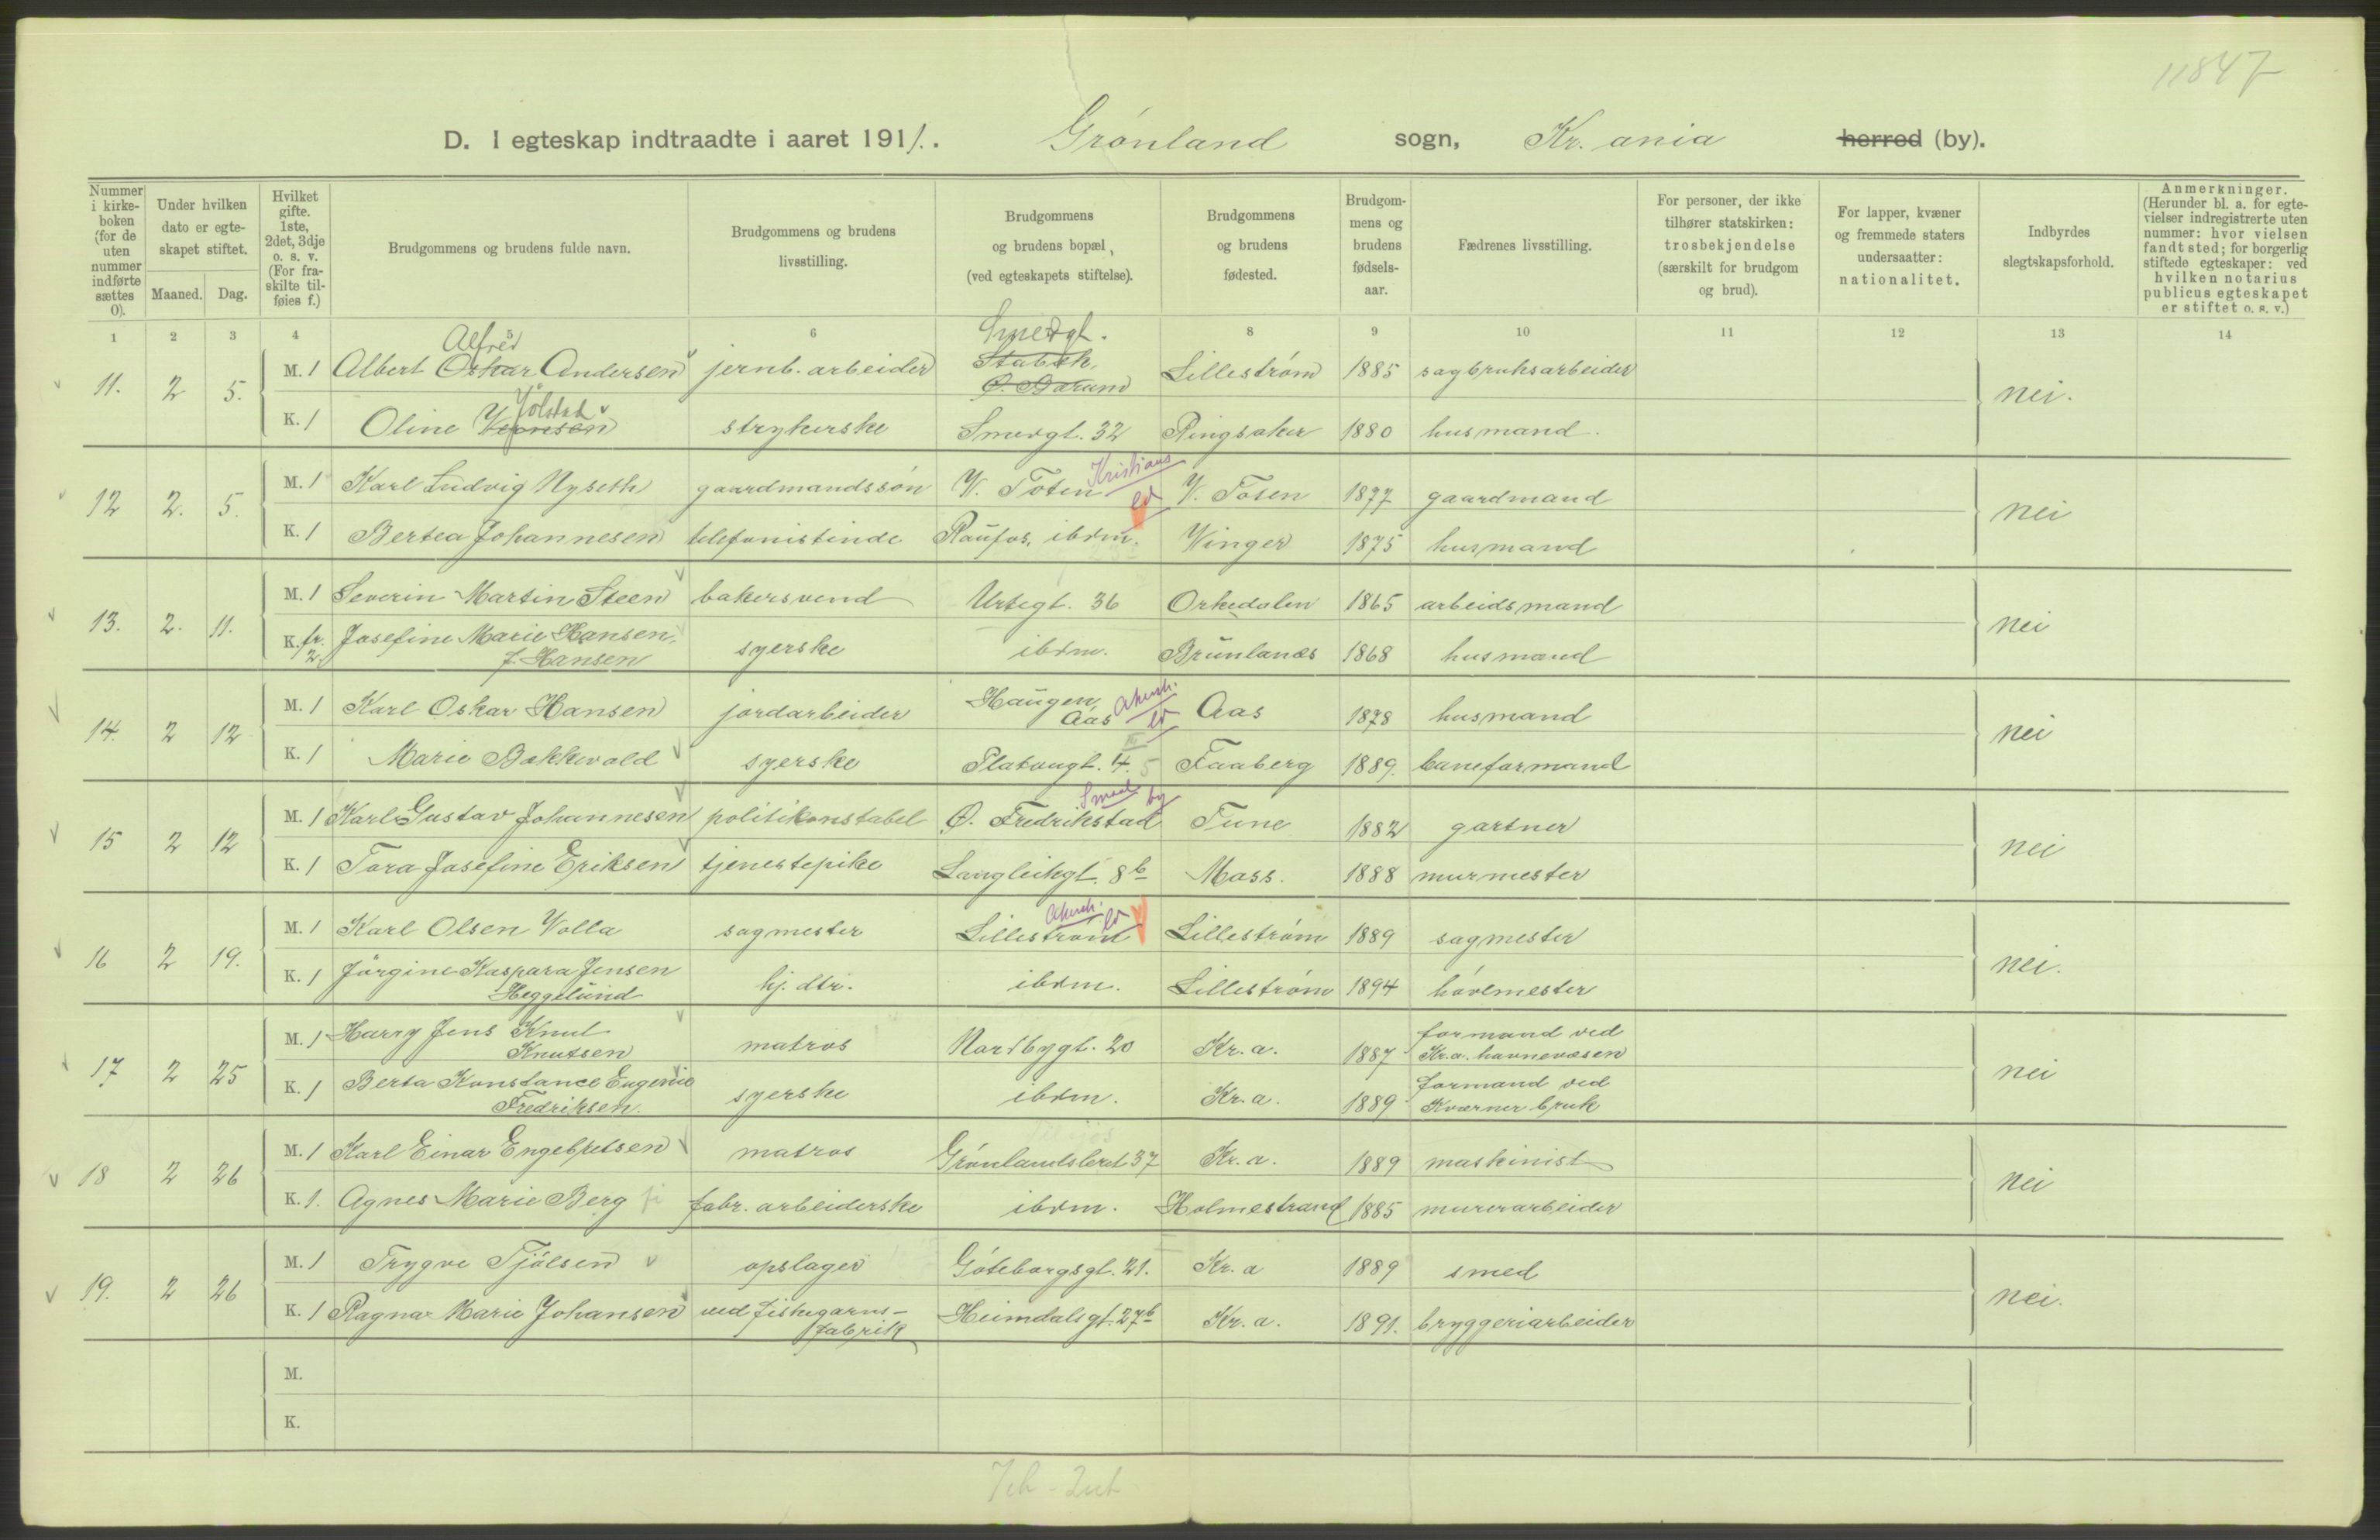 11847
D. I egteskap indtraadte i aaret 1911. Grønland sogn, Kr.ania herred (by).
Nummer i kirkeboken (for de uten nummer indførte sættes 0).
Under hvilken dato er egteskapet stiftet. Maaned. Dag.
Hvilket gifte. 1ste, 2det, 3dje o. s. v. (For fraskilte tilføies f.)
Brudgommens og brudens fulde navn.
Brudgommens og brudens livsstilling.
Brudgommens og brudens bopæl, (ved egteskapets stiftelse).
Brudgommens og brudens fødested.
Brudgommens og brudens fødselsaar.
Fædrenes livsstilling.
For personer, der ikke tilhører statskirken: trosbekjendelse (særskilt for brudgom og brud).
For lapper, kvæner og fremmede staters undersaatter: nationalitet.
Indbyrdes slegtskapsforhold.
Anmerkninger. (Herunder bl. a. for egtevielser indregistrerte uten nummer: hvor vielsen fandt sted; for borgerlig stiftede egteskaper: ved hvilken notarius publicus egteskapet er stiftet o. s. v.)
1 2 3 4 5 6 8 9 10 11 12 13 14
Alfred Smedgt.
11. 2 5. M. 1 Albert Oskar Andersen jernb. arbeider Stabæk, Ø. Bærum Lillestrøm 1885 sagbruksarbeider nei.
Jölstad
K. 1 Oline strykerske Smedgt. 32 Ringsaker 1880 husmand.
12 2. 5. M. 1 Karl Ludvig Nyseth gaardmandssøn V. Toten Kristians ld V. Toten 1877 gaardmand nei
K. 1 Bertea Johannesen telefonistinde Raufos, ibdm. Vinger 1875 husmand
13. 2. 11. M. 1 Severin Martin Steen bakersvend Urtegt. 36 Orkedalen 1865 arbeidsmand nei
K. fr. 2 Josefine Marie Hansen, f. Hansen syerske ibdm. Brunlanes 1868 husmand
14. 2 12 M. 1 Karl Oskar Hansen jordarbeider Haugen, Aas Akersh. ld Aas 1878 husmand nei
K. 1 Marie Bakkevold syerske Platougt. 4. 5 Faaberg 1889. baneformand
15 2 12 M. 1 Karl Gustav Johannesen politikonstabel Ø. Fredrikstad Smaal. by Tune 1882 gartner nei
K. 1 Tora Josefine Eriksen tjenestepike Langleikgt. 8b Moss. 1888 murmester
16 2 19. M. 1 Karl Olsen Volla sagmester Lillestrøm Akersh. ld Lillestrøm 1889 sagmester nei.
K. 1 Jörgine Kaspara Jensen Heggelund hj. dtr. ibdm. Lillestrøm 1894 høvlmester
17 2 25 M. 1 Harry Jens Knut Knutsen matros Nordbygt. 20 Kr.a. 1887 formand ved Kr.a. havnevæsen nei
K. 1 Berta Konstance Eugenie Fredriksen. syerske ibdm. Kr.a. 1889 formand ved Kværner bruk
18 2 26 M. 1 Karl Einar Engebretsen matros Grønlandsleret 37 Kr.a. 1889 maskinist nei
K. 1. Agnes Marie Berg fabr. arbeiderske ibdm. Holmestrand 1885 murerarbeider
19. 2 26 M. 1 Trygve Tjölsen opslager Göteborgsgt. 21. Kr.a 1889 smed nei.
K. 1 Ragna Marie Johansen ved fiskegarnsfabrik Heimdalsgt. 27b Kr.a. 1891. bryggeriarbeider
M.
K.